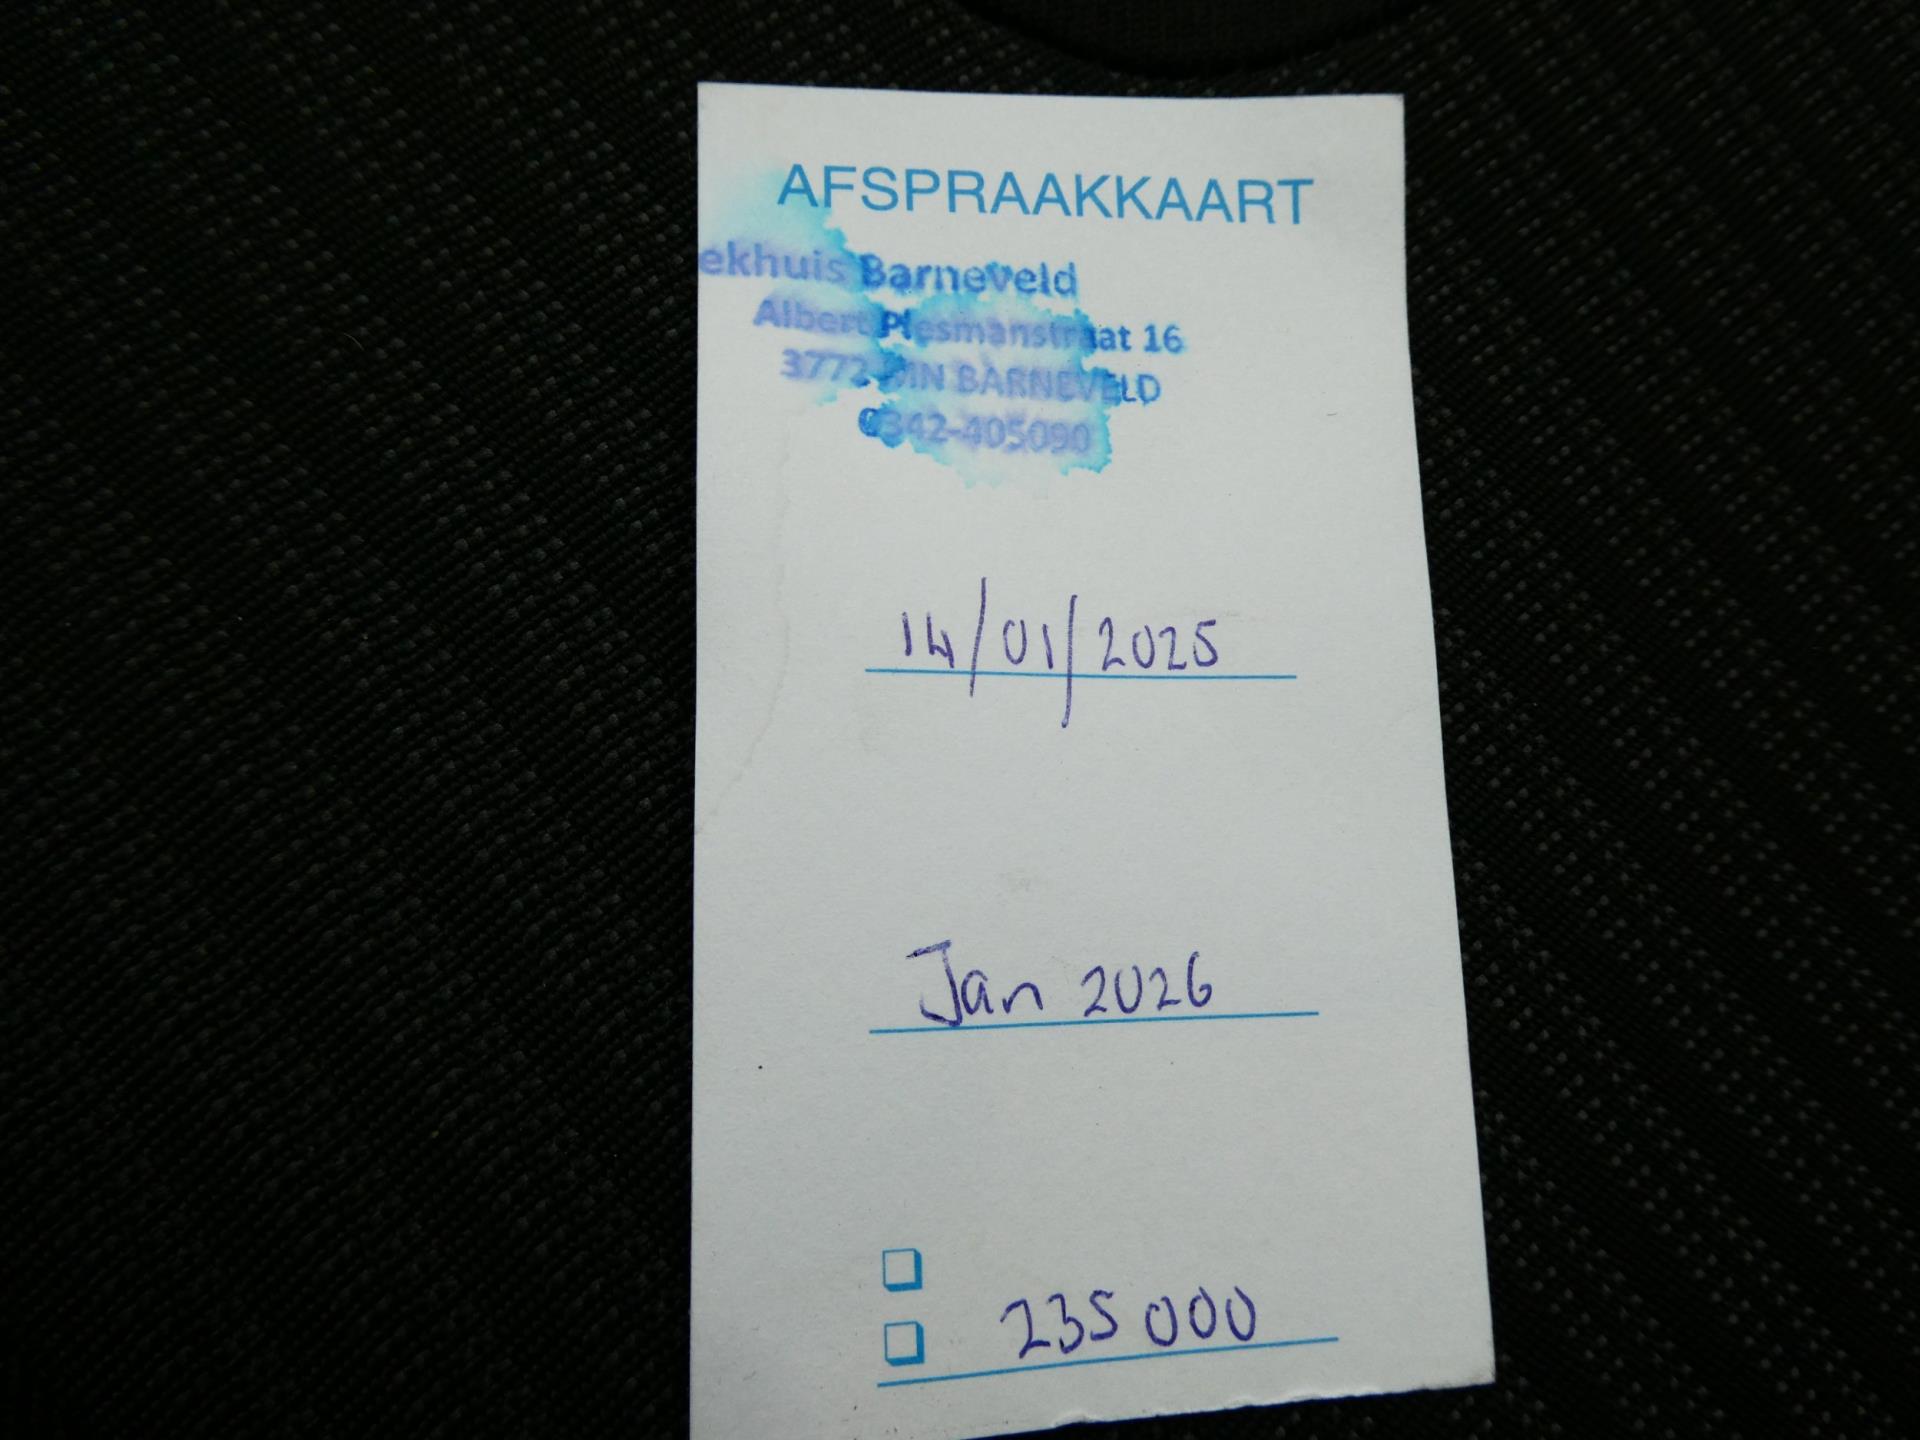 AFSPRAAKKAART
ekhuis Barneveld
Albert Plesmanstraat 16
3772 MN BARNEVELD
0342-405090
14/01/2025
Jan 2026
235 000